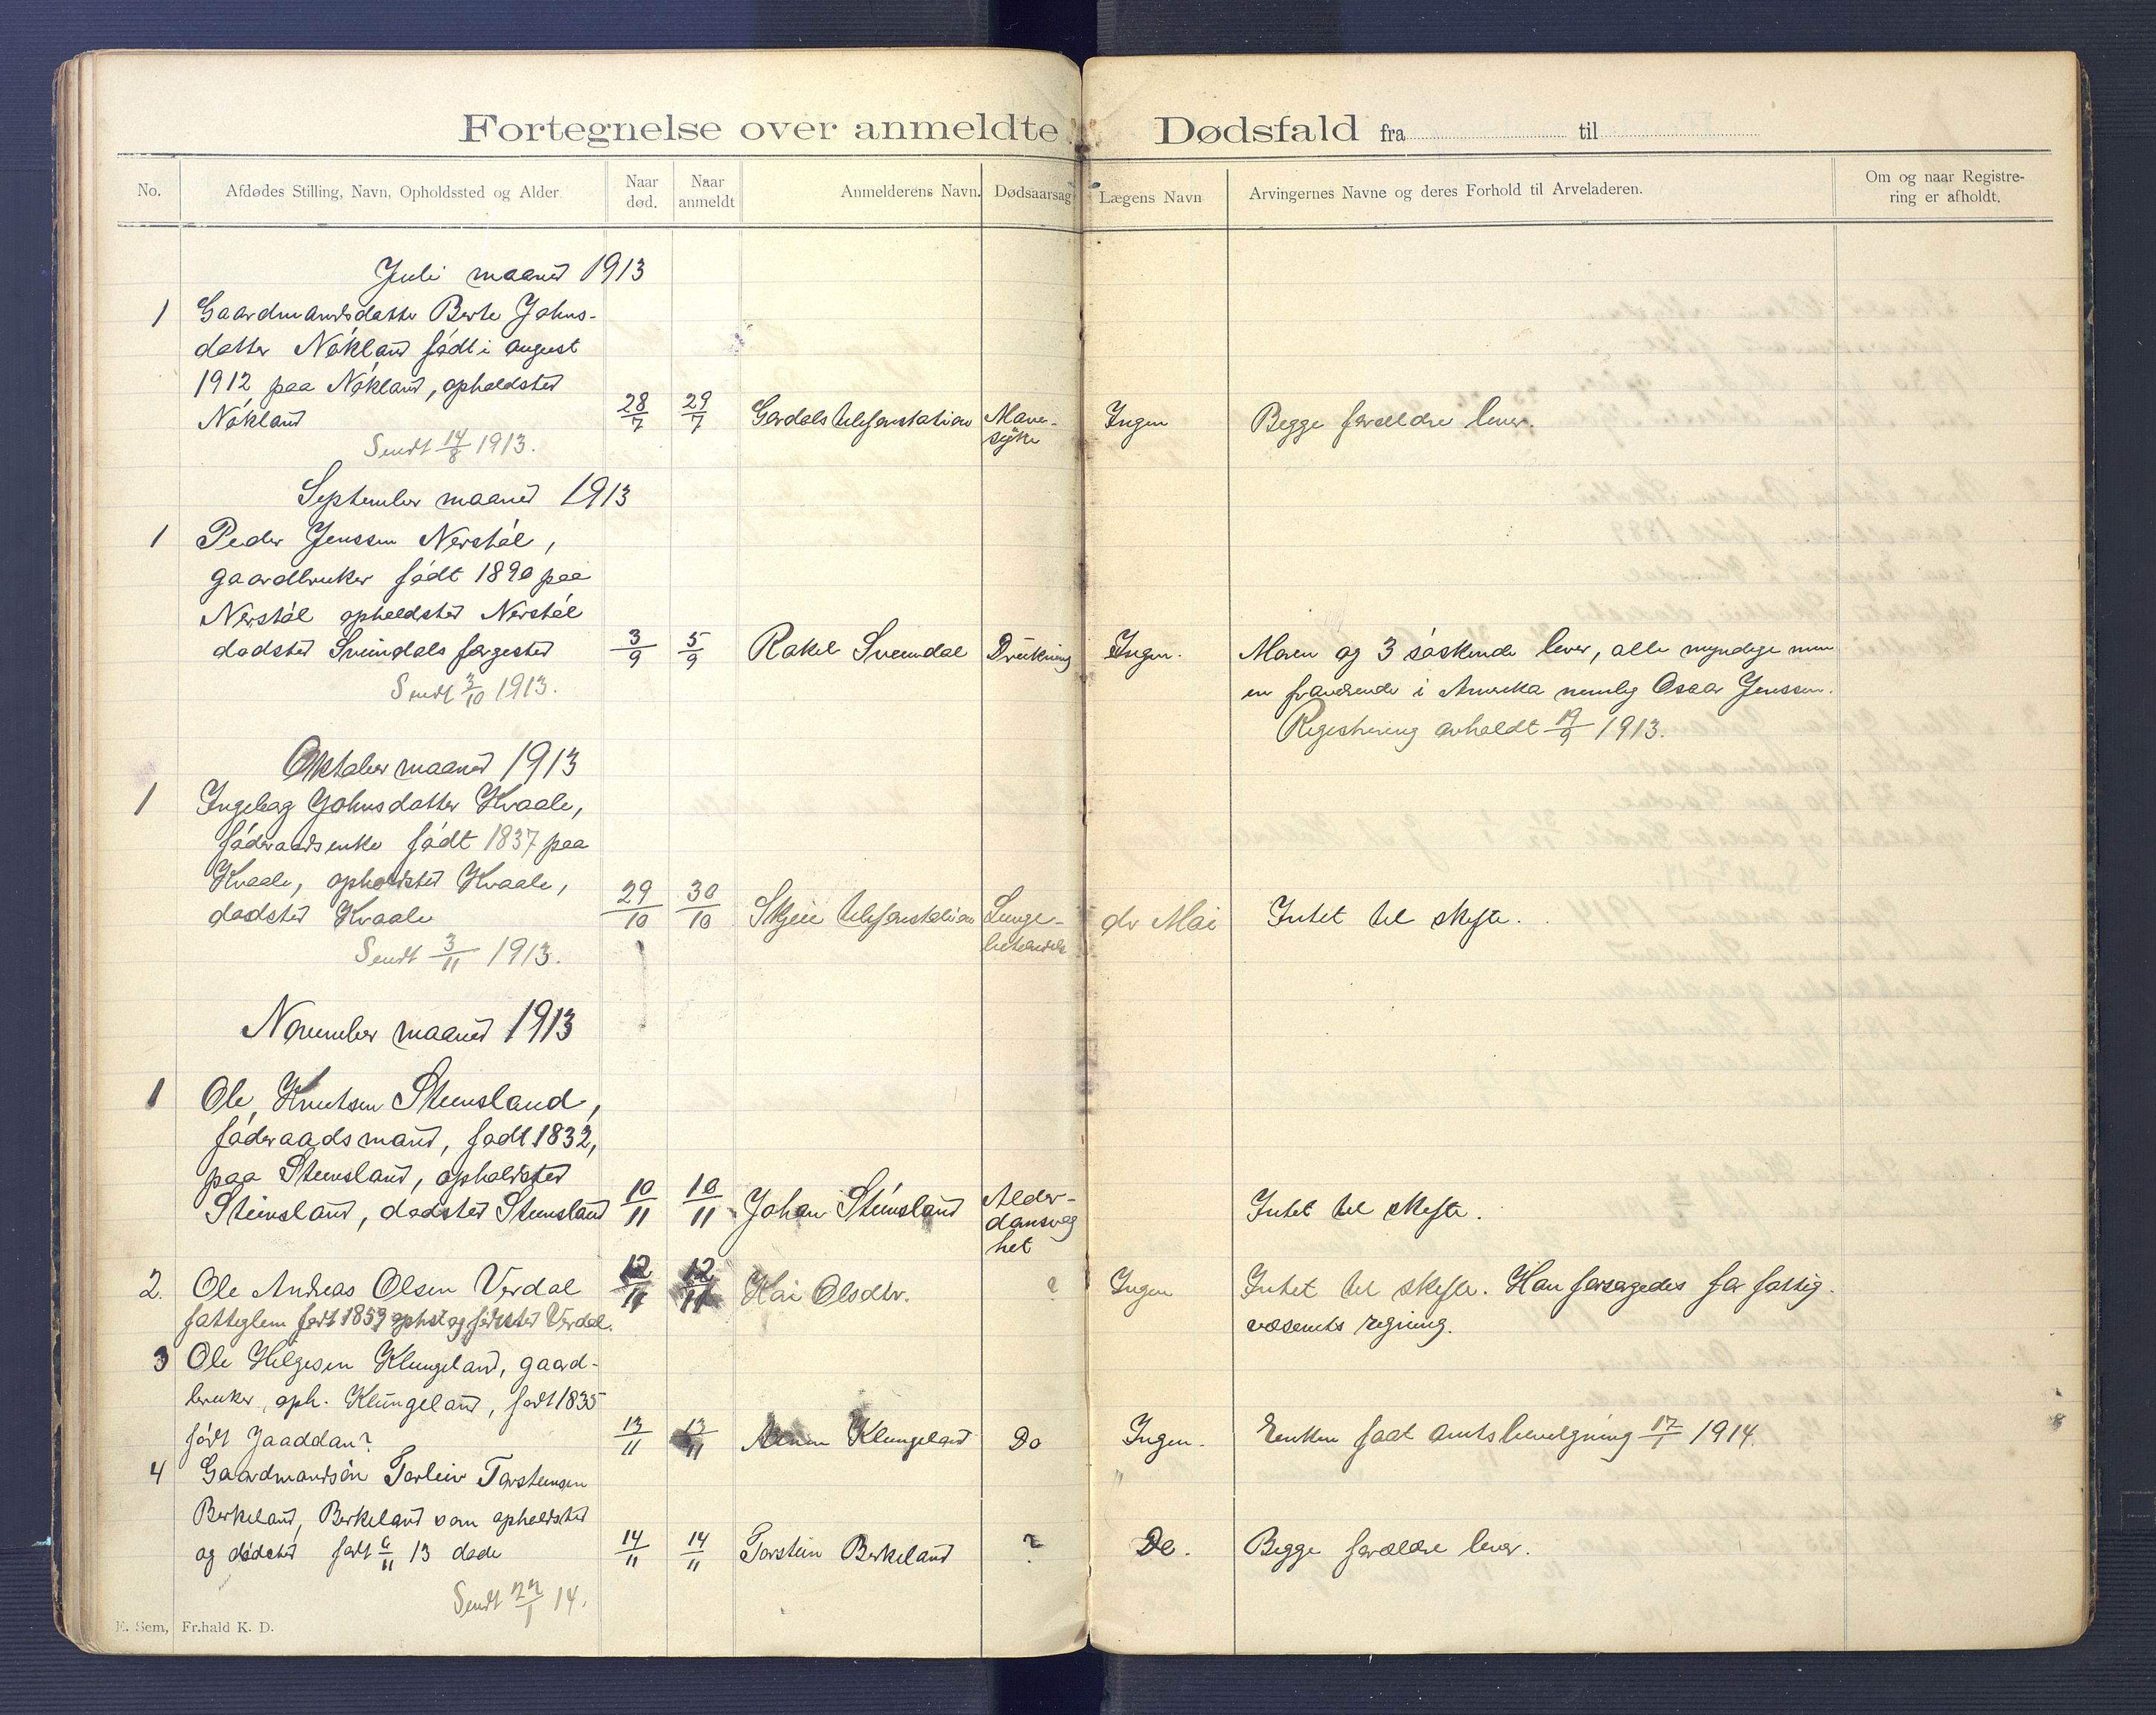 Fortegnelse over anmeldte Dødsfald fra til
No. Afdødes Stilling, Navn, Opholdssted og Alder. Naar død. Naar anmeldt Anmelderens Navn. Dødsaarsag Lægens Navn Arvingernes Navne og deres Forhold til Arveladeren. Om og naar Registrering er afholdt.
Juli maaned 1913
1 Gaardmandsdatter Berte Johns-
datter Nökland född i August
1912 paa Nökland, opholdsted
Nökland 28/7 29/7 telefonstation Mave- Ingen Begge forældre lever.
syke
Sendt 14/8 1913.
September maaned 1913
1 Peder Jenssen Nerstöl,
gaardbruker född 1890 paa
Nerstöl opholdsted Nerstöl
dødsted Svindals færgested 3/9 5/9 Rakel Sveindal Drukning Ingen. Moren og 3 søskende lever, alle myndige men
Sendt 3/10 1913. en fraværende i Amerika nemlig Jenssen.
Registrering avholdt 19/9 1913.
Oktober maaned 1913
1 Ingebog Johnsdatter Kvaale,
föderaadsenke född 1837 paa
Kvaale, opholdsted Kvaale,
dødsted Kvaale 29/10 30/10 Skjeie telefonstation Lunge- dr Mai Intet til skifte.
betendelse
Sendt 3/11 1913.
November maaned 1913
1 Ole Knutsen Steinsland,
föderaadsmand, født 1832,
paa Steinsland, opholdsted
Steinsland, dødsted Steinsland 10/11 10/11 Johan Steinsland Alder- Intet til skifte.
domsvag
het
2. Ole Andreas Olsen Verdal 12/11 12/11 Olsdtr. ? Ingen Intet til skifte. Han forsørgedes for fattig-
fattiglem født 1859 Verdal. væsenets regning.
3 Ole Helgesen Klungeland, gaard-
bruker, oph. Klungeland, født 1835
født 13/11 13/11 Klungeland Do Ingen. Enken faat Amtsbevilgning 17/1 1914.
4 Gaardmandsön Torleiv Torsteinsen
Berkeland, Berkeland som opholdsted
og dödsted født 6/11 13 döde 14/11 14/11 Torstein Berkeland ? Do. Begge forældre lever.
Sendt 22/1 14.
E. Sem, Fr.hald K. D.